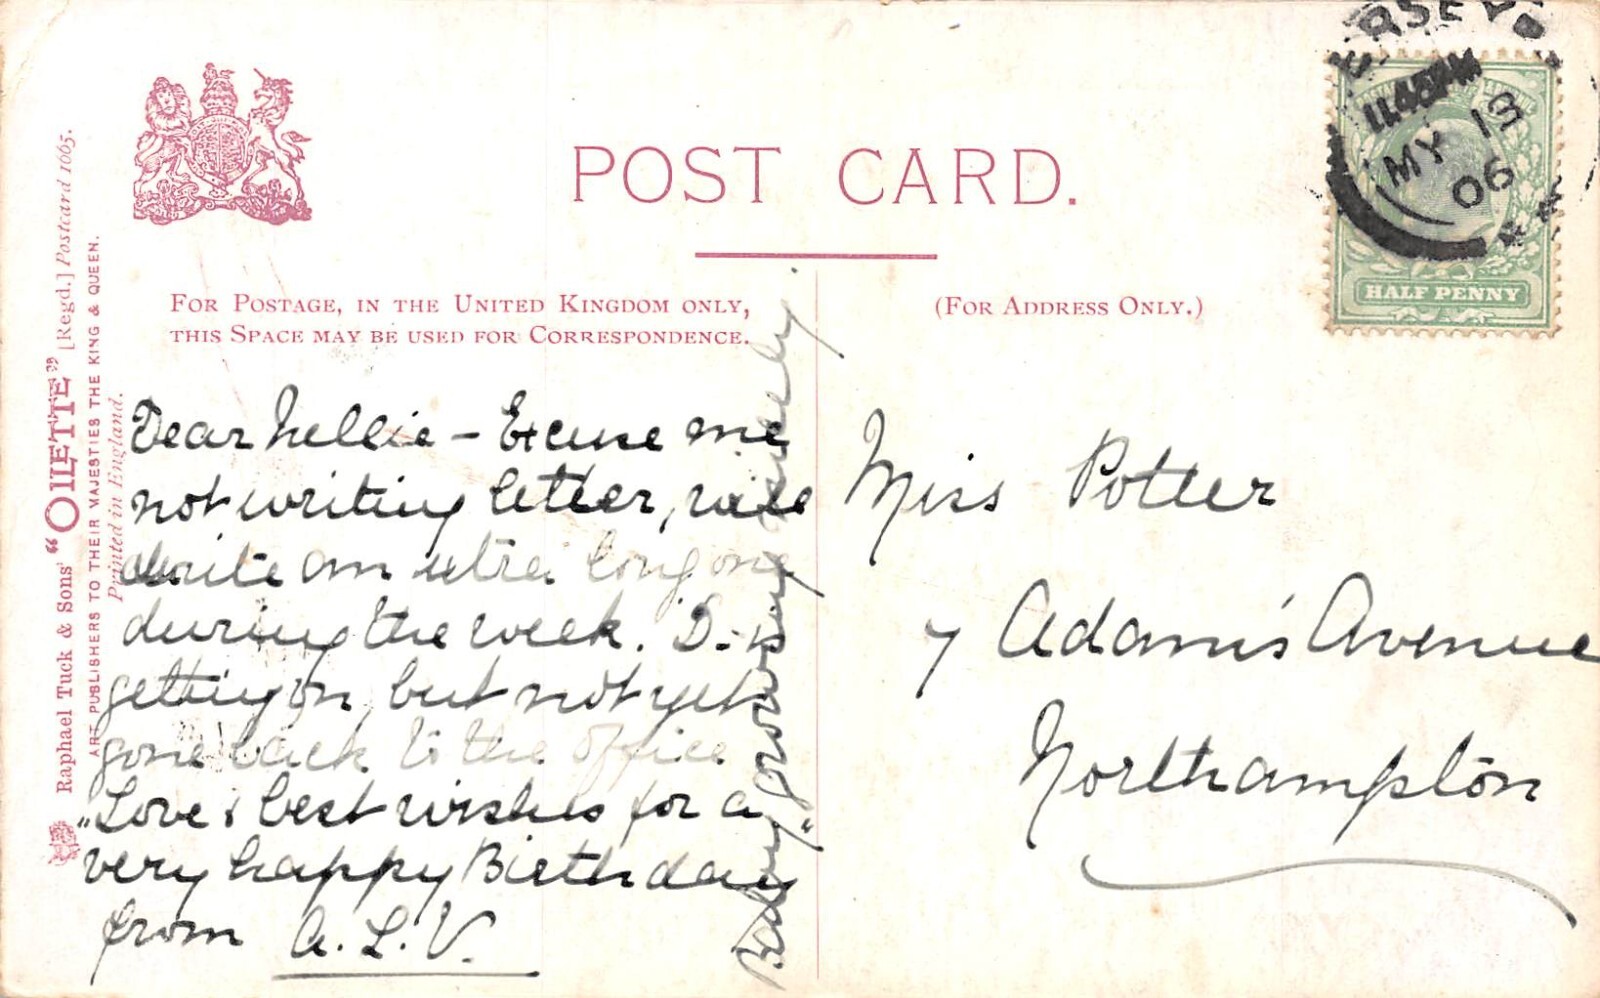 POST CARD.
FOR POSTAGE, IN THE UNITED KINGDOM ONLY,
THIS SPACE MAY BE USED FOR CORRESPONDENCE.
(FOR ADDRESS ONLY.)
ERSEY
11.45PM
MY 13
06
HALF PENNY
Raphael Tuck & Sons' "OILETTE" [Regd.] Postcard 1665.
ART PUBLISHERS TO THEIR MAJESTIES THE KING & QUEEN.
Printed in England.
Dear Nellie - Excuse me
not writing letter, will
write an extra long one
during the week. D. is
getting on, but not yet
gone back to the office
"Love & best wishes for a
very happy Birthday"
from A.L.V.
Baby growing nicely.
Miss Potter
7 Adam's Avenue
Northampton